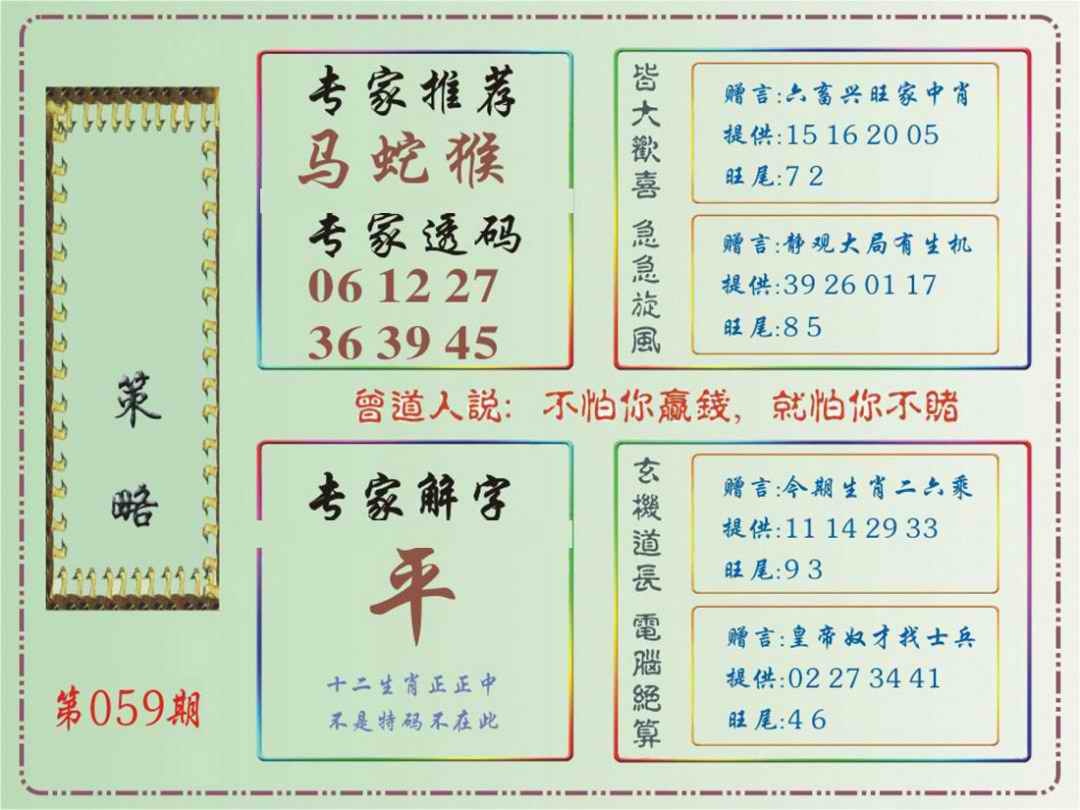 策略
第059期
专家推荐
马蛇猴
专家透码
06 12 27
36 39 45
皆大歡喜
赠言:六畜兴旺家中肖
提供:15 16 20 05
旺尾:7 2
急急旋风
赠言:静观大局有生机
提供:39 26 01 17
旺尾:8 5
曾道人説：不怕你赢錢，就怕你不賭
专家解字
平
十二生肖正正中
不是特码不在此
玄機道長
赠言:今期生肖二六乘
提供:11 14 29 33
旺尾:9 3
電腦絕算
赠言:皇帝奴才找士兵
提供:02 27 34 41
旺尾:4 6